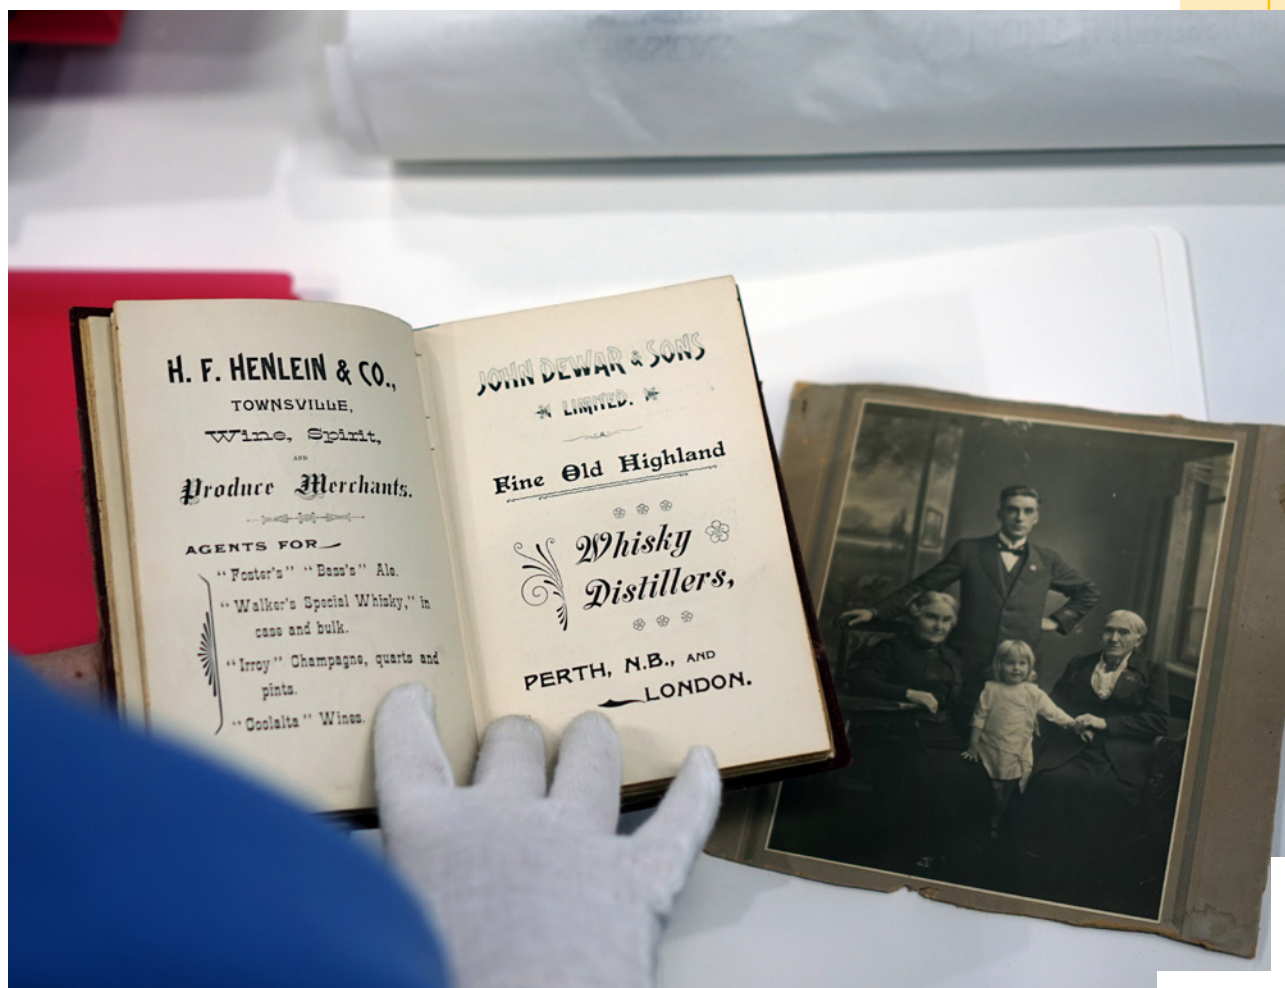 H. F. HENLEIN & CO.,
TOWNSVILLE,
Wine, Spirit,
AND
Produce Merchants.
AGENTS FOR
"Foster's" "Bass's" Ale.
"Walker's Special Whisky," in
case and bulk.
"Irroy" Champagne, quarts and
pints.
"Coolalta" Wines.
JOHN DEWAR & SONS
LIMITED.
Fine Old Highland
Whisky
Distillers,
PERTH, N.B., AND
LONDON.